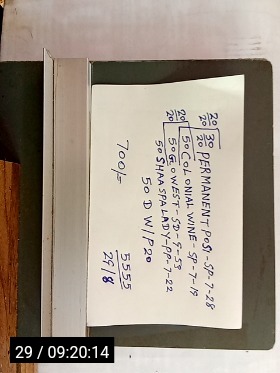 20/20 30 PERMANENT POSI-SP-7-28
20 50 COLONIAL WINE-SP-7-19
20/20 50 GLOWEST-SD-9-53
50 SHAASPALADY-PP-7-22
50 D W/P20
700/-
5555
29/8
29 / 09:20:14